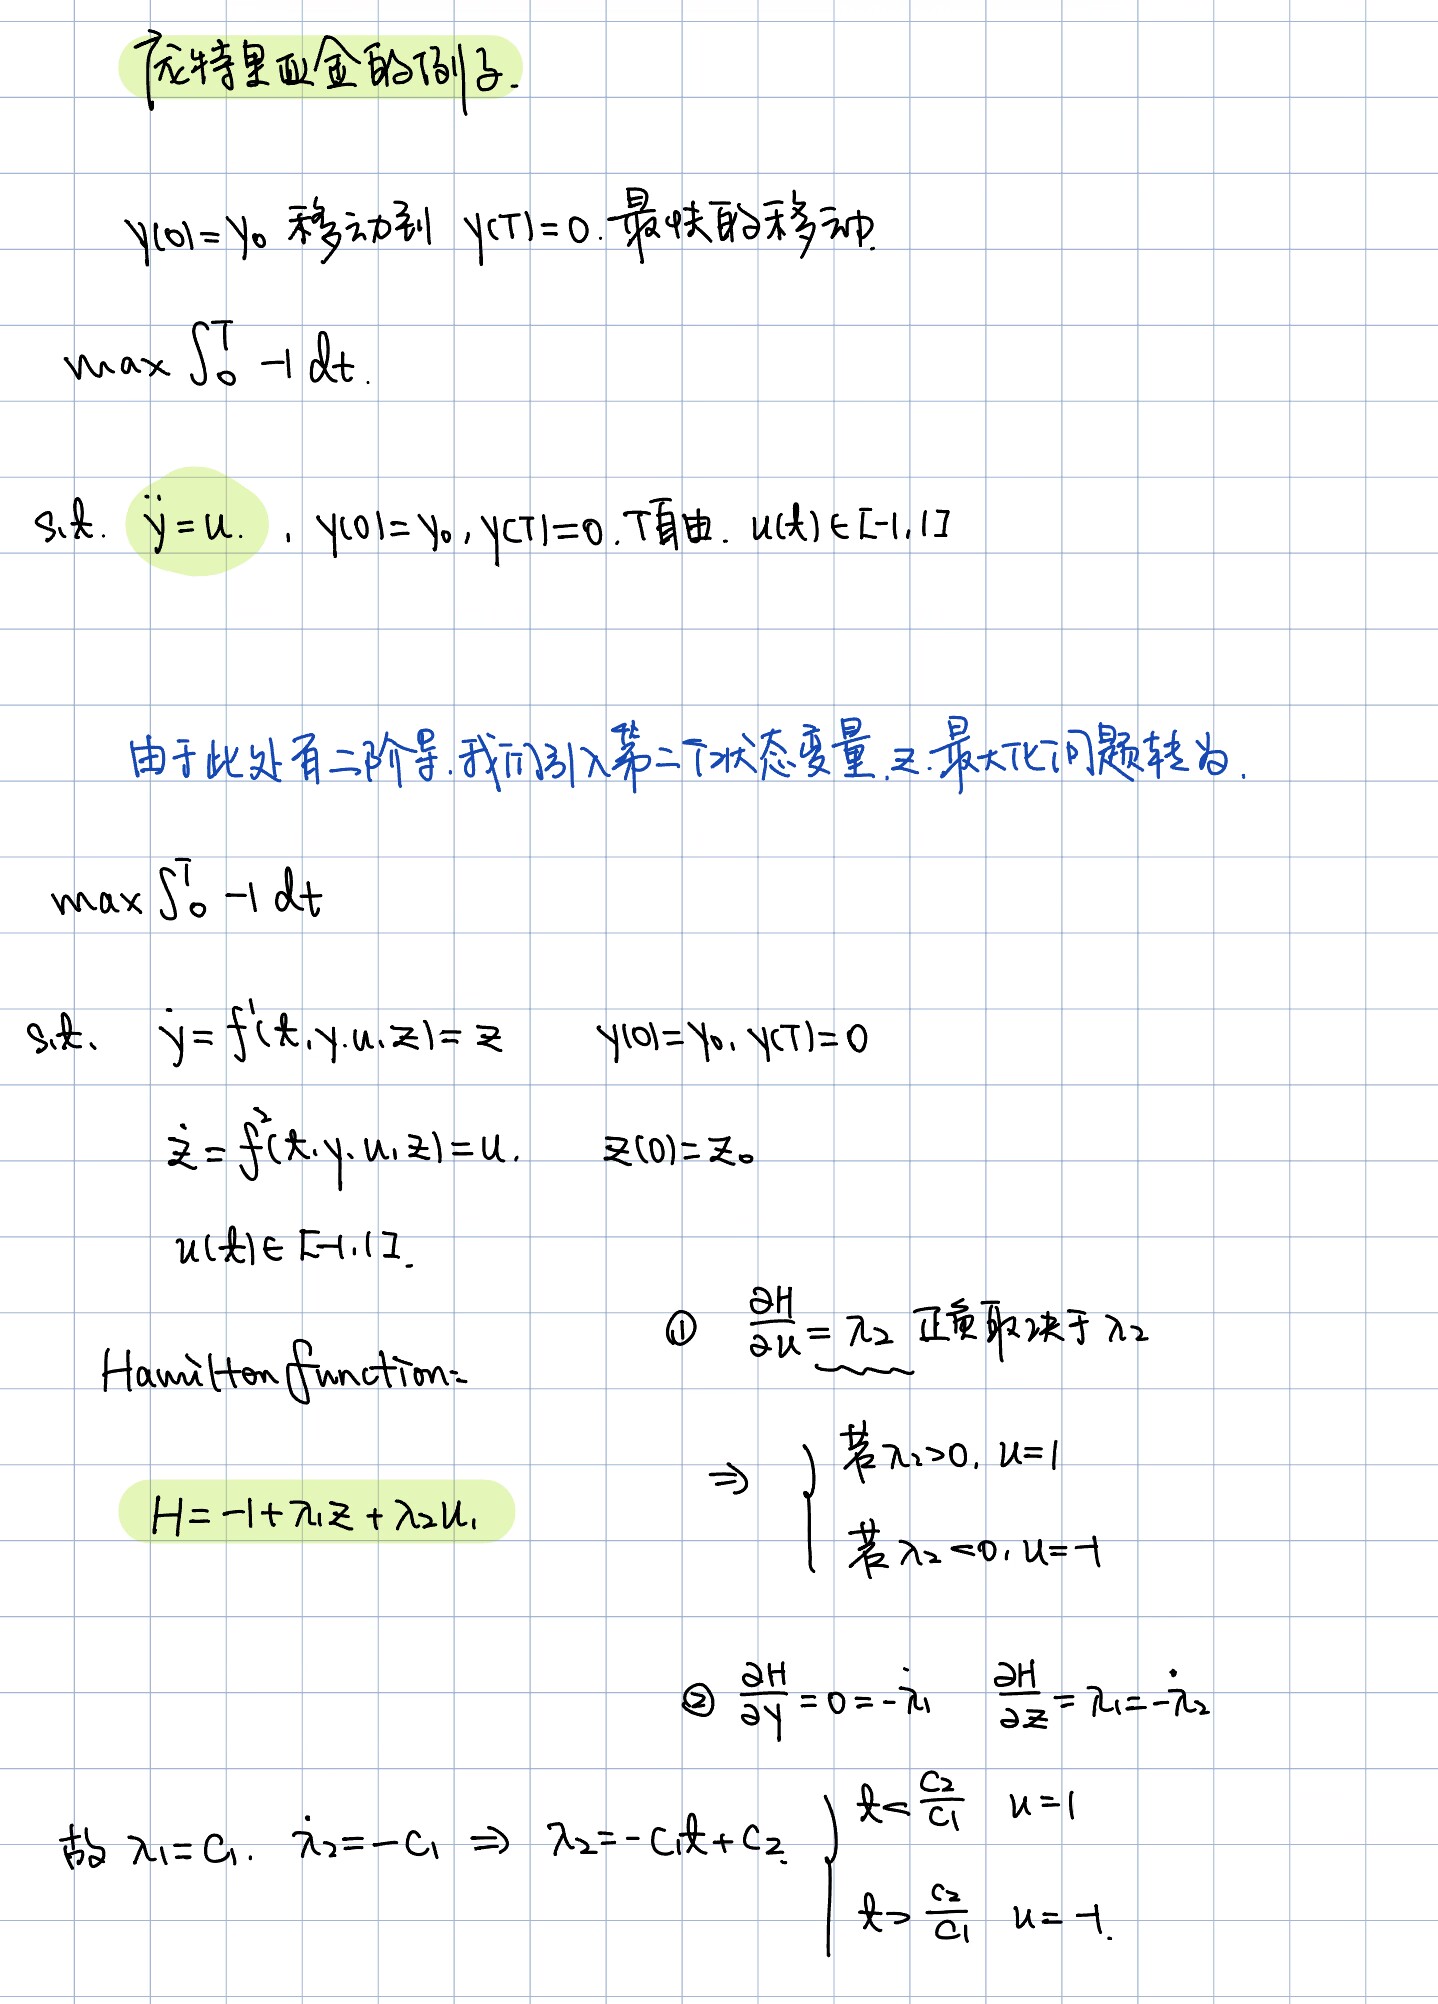 庞特里亚金的例子.
y(0)=y₀ 移动到 y(T)=0. 最快的移动.
max ∫₀ᵀ -1 dt.
s.t. ÿ=u. , y(0)=y₀, y(T)=0. T自由. u(t)∈[-1,1]
由于此处有二阶导.我们引入第二个状态变量.z.最大化问题转为.
max ∫₀ᵀ -1 dt
s.t. ẏ=f¹(t,y,u,z)=z y(0)=y₀, y(T)=0
ż=f²(t,y,u,z)=u. z(0)=z₀
u(t)∈[-1,1].
Hamilton function:
H=-1+λ₁z+λ₂u.
① ∂H/∂u=λ₂ 正负取决于λ₂
⇒ { 若λ₂>0, u=1
若λ₂<0, u=-1
② ∂H/∂y=0=-λ̇₁ ∂H/∂z=λ₁=-λ̇₂
故 λ₁=C₁. λ̇₂=-C₁ ⇒ λ₂=-C₁t+C₂. { t<C₂/C₁ u=1
t>C₂/C₁ u=-1.